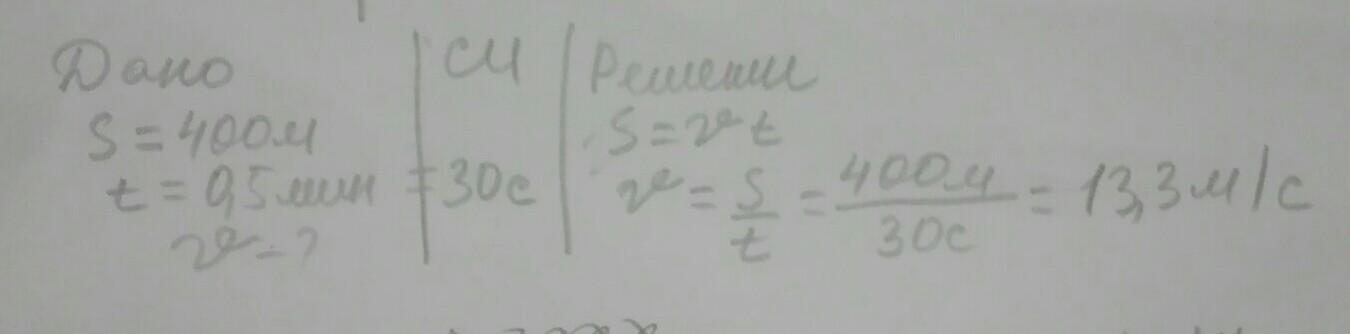 Дано | СИ | Решение
S = 400м
t = 0,5 мин = 30с
v - ?
S = vt
v = S/t = 400м/30с = 13,3 м/с